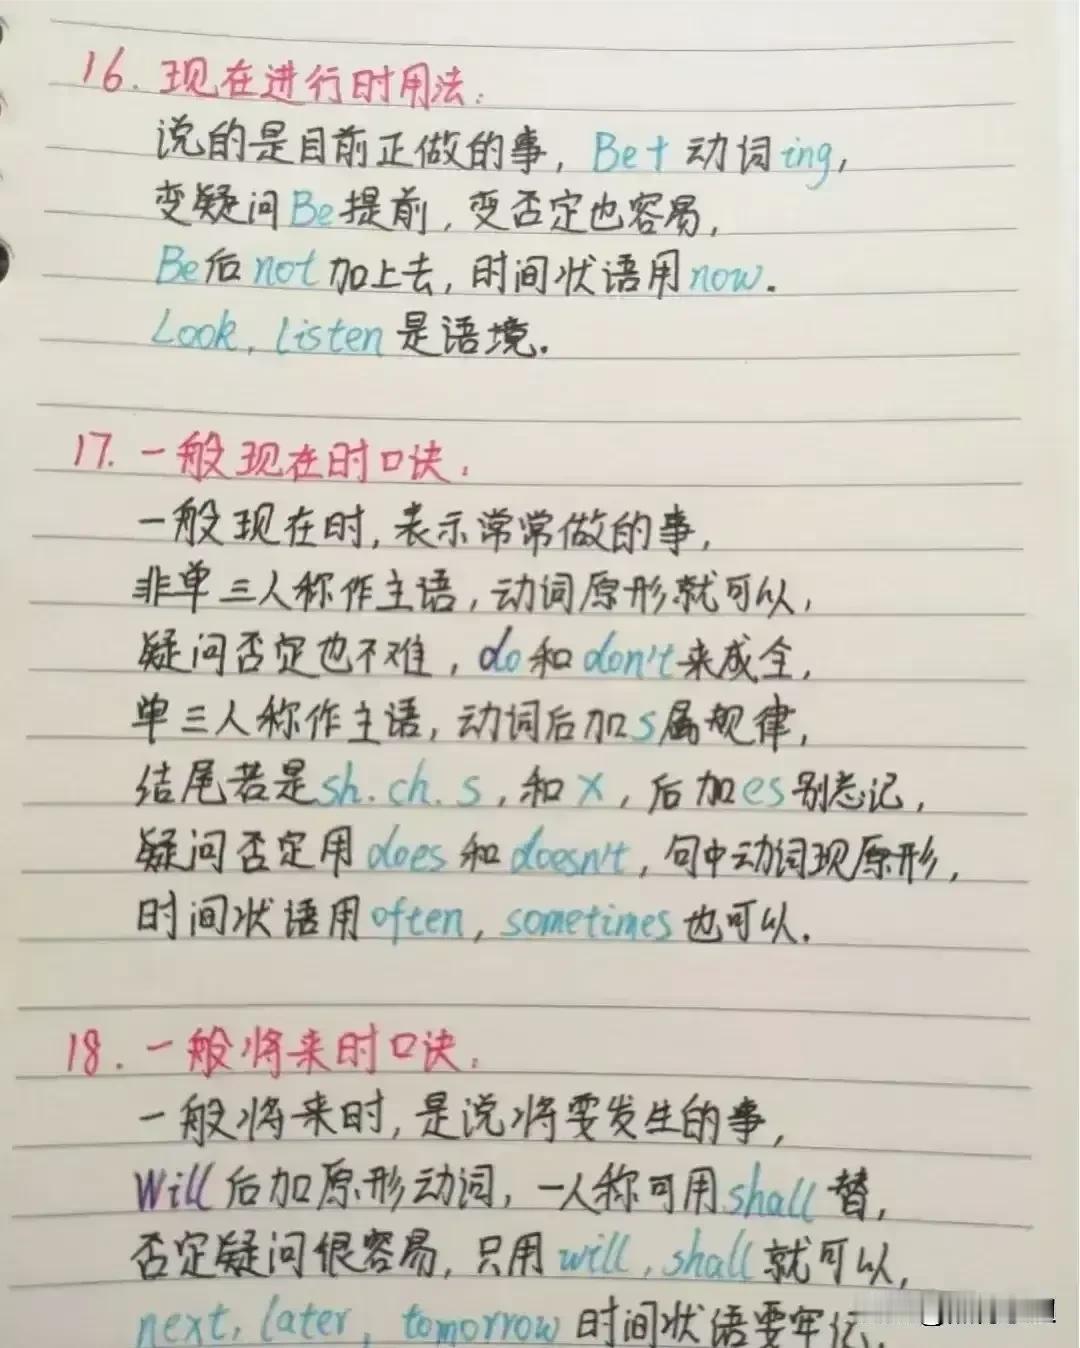 16. 现在进行时用法:
说的是目前正做的事, Be+动词ing,
变疑问Be提前, 变否定也容易,
Be后not加上去, 时间状语用now.
Look, Listen是语境.
17. 一般现在时口诀:
一般现在时, 表示常常做的事,
非单三人称作主语, 动词原形就可以,
疑问否定也不难, do和don't来成全,
单三人称作主语, 动词后加s属规律,
结尾若是sh. ch. s, 和x, 后加es别忘记,
疑问否定用does和doesn't, 句中动词现原形,
时间状语用often, sometimes也可以.
18. 一般将来时口诀:
一般将来时, 是说将要发生的事,
Will后加原形动词, 一人称可用shall替,
否定疑问很容易, 只用will, shall就可以,
next, later, tomorrow时间状语要牢